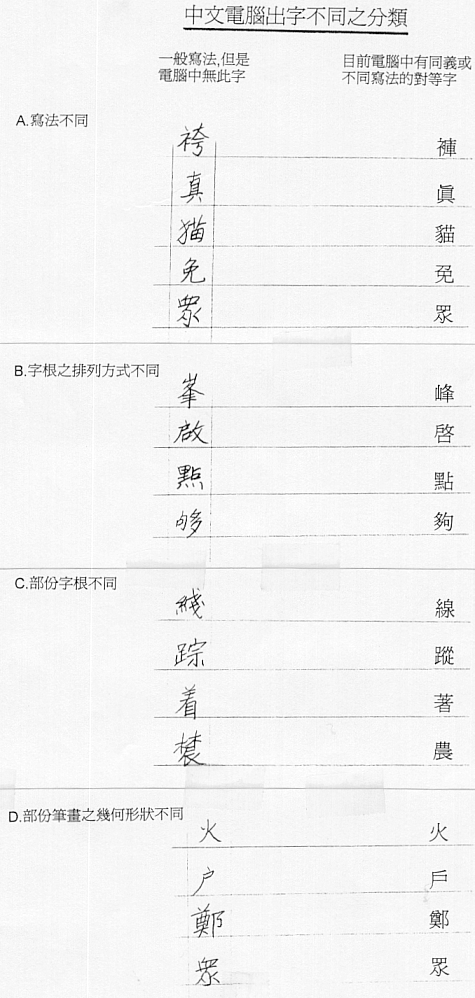 中文電腦出字不同之分類
一般寫法,但是
電腦中無此字
目前電腦中有同義或
不同寫法的對等字
A.寫法不同
袴 褲
真 眞
猫 貓
免 兔
眾 眾
B.字根之排列方式不同
峯 峰
啟 啓
點 點
够 夠
C.部份字根不同
綫 線
踪 蹤
着 著
農
D.部份筆畫之幾何形狀不同
火 火
户 戶
鄭 鄭
眾 眾